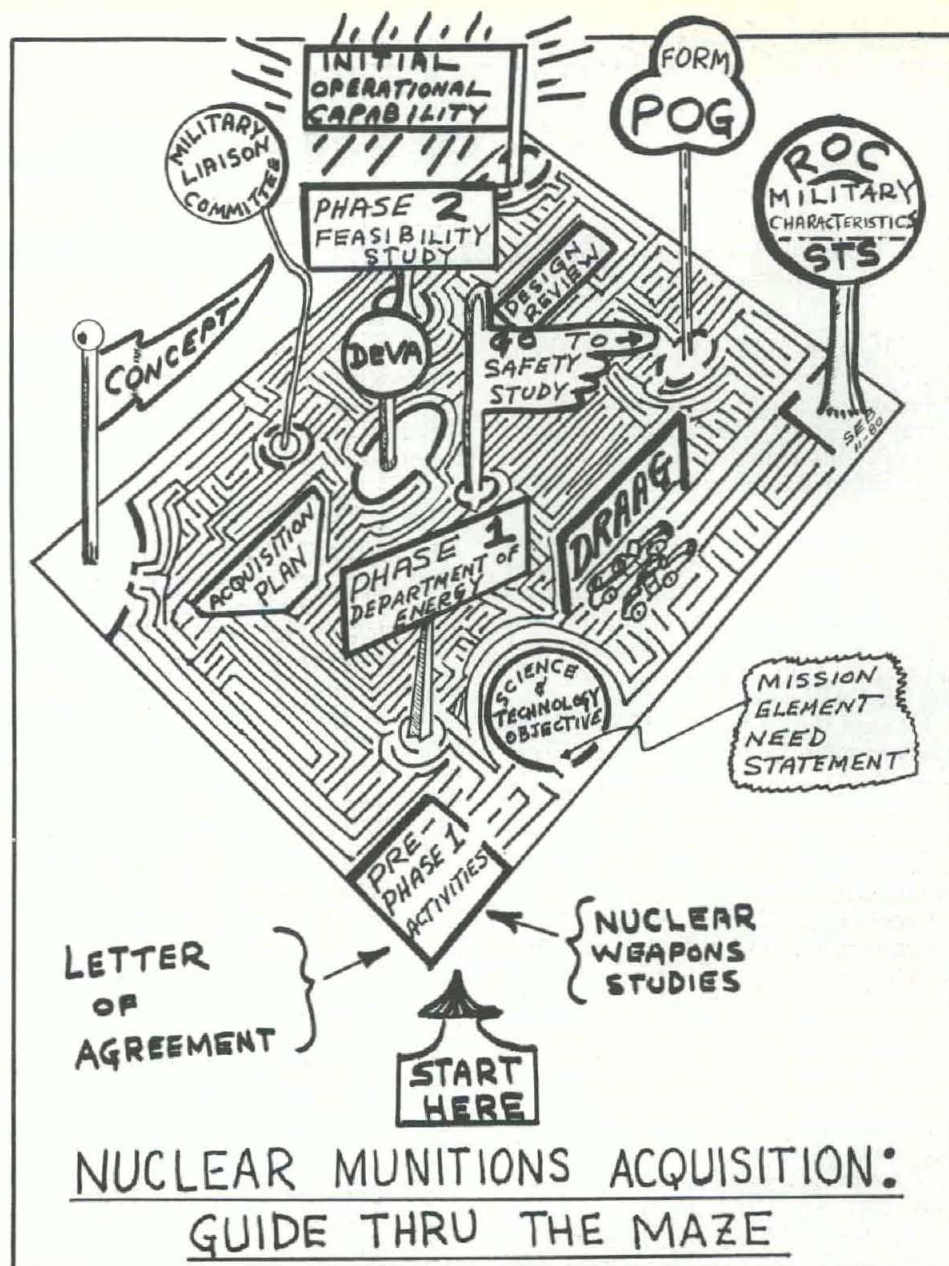 INITIAL
OPERATIONAL
CAPABILITY
FORM
POG
MILITARY
LIAISON
COMMITTEE
ROC
MILITARY
CHARACTERISTICS
STS
PHASE 2
FEASIBILITY
STUDY
DESIGN
REVIEW
CONCEPT
DeVA
GO TO
SAFETY
STUDY
SEB
11-80
DRAAG
ACQUISITION
PLAN
PHASE 1
DEPARTMENT of
ENERGY
SCIENCE
&
TECHNOLOGY
OBJECTIVE
MISSION
ELEMENT
NEED
STATEMENT
PRE-
PHASE 1
ACTIVITIES
LETTER
OF
AGREEMENT
NUCLEAR
WEAPONS
STUDIES
START
HERE
NUCLEAR MUNITIONS ACQUISITION:
GUIDE THRU THE MAZE